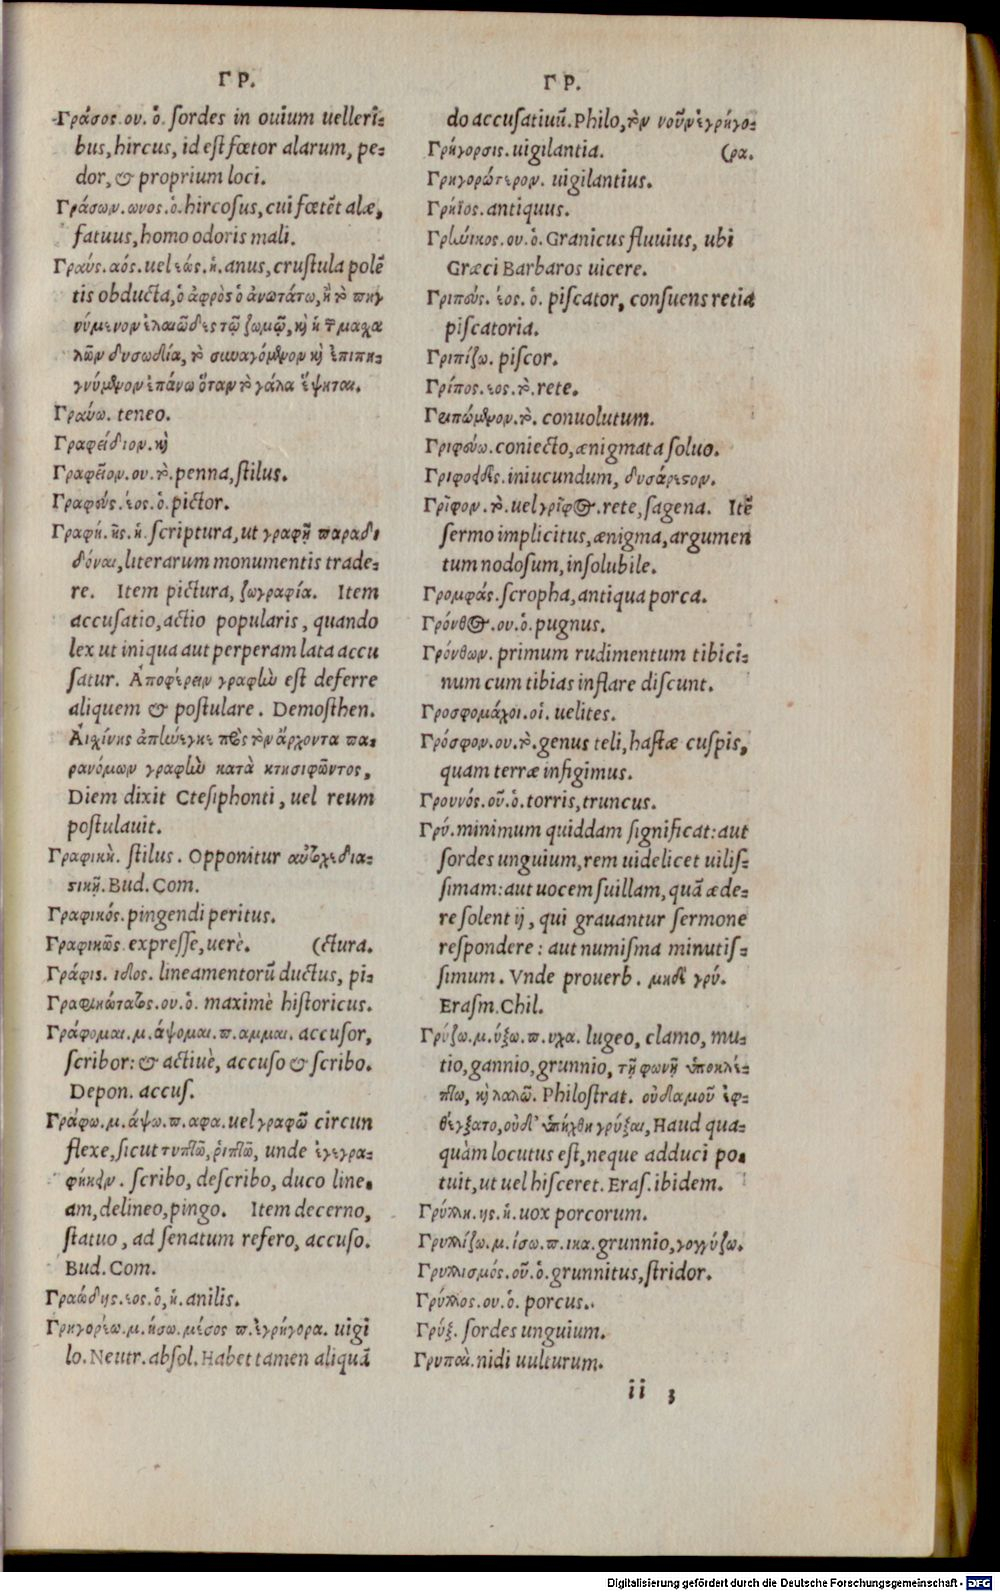 ΓΡ.
Γράσος. ου. ὁ. sordes in ouium uelleri-
bus, hircus, id est fœtor alarum, pe-
dor, & proprium loci.
Γράσων. ωνος. ὁ. hircosus, cui fœtẽt alæ,
fatuus, homo odoris mali.
Γραύς. αός. uel εώς. ἡ. anus, crustula polẽ
tis obducta, ὁ ἀφρὸς ὁ ἀνωτάτω, ἢ τὸ πηγ
νύμενον ἐλαιῶδες τῷ ζωμῷ, καὶ ἡ τ͂ μαχα
λῶν δυσωδία, τὸ συναγόμενον καὶ ἐπιπη-
γνύμενον ἐπάνω ὅταν τὸ γάλα ἕψηται.
Γραύω. teneo.
Γραφείδιον. καὶ
Γραφεῖον. ου. τὸ. penna, stilus.
Γραφεύς. έος. ὁ. pictor.
Γραφή. ῆς. ἡ. scriptura, ut γραφῇ παραδι
δόναι, literarum monumentis trade-
re. Item pictura, ζωγραφία. Item
accusatio, actio popularis, quando
lex ut iniqua aut perperam lata accu
satur. Ἀποφέρειν γραφὴν est deferre
aliquem & postulare. Demosthen.
Αἰχίνης ἀπήνεγκε πρὸς τὸν ἄρχοντα πα-
ρανόμων γραφὴν κατὰ κτησιφῶντος,
Diem dixit Ctesiphonti, uel reum
postulauit.
Γραφική. stilus. Opponitur αὐτοσχεδια-
στικῇ. Bud. Com.
Γραφικός. pingendi peritus.
Γραφικῶς. expresse, uerè. (ctura.
Γράφις. ιδος. lineamentorũ ductus, pi-
Γραφικώτατος. ου. ὁ. maximè historicus.
Γράφομαι. μ. άψομαι. π. αμμαι. accusor,
scribor: & actiuè, accuso & scribo.
Depon. accus.
Γράφω. μ. άψω. π. αφα. uel γραφῶ circun
flexe, sicut τυπτῶ, ῥιπτῶ, unde ἐγεγρα-
φήκειν. scribo, describo, duco line-
am, delineo, pingo. Item decerno,
statuo, ad senatum refero, accuso.
Bud. Com.
Γραώδης. εος. ὁ, ἡ. anilis.
Γρηγορέω. μ. ήσω. μέσος π. ἐγρήγορα. uigi
lo. Neutr. absol. Habet tamen aliquã
ΓΡ.
do accusatiuũ. Philo, τὸν νοῦν ἐγρήγο-
Γρήγορσις. uigilantia. (ρα.
Γρηγορώτερον. uigilantius.
Γρήϊος. antiquus.
Γρήνικος. ου. ὁ. Granicus fluuius, ubi
Græci Barbaros uicere.
Γριπεύς. έος. ὁ. piscator, consuens retia
piscatoria.
Γριπίζω. piscor.
Γρίπος. εος. τὸ. rete.
Γειπώμενον. τὸ. conuolutum.
Γριφεύω. coniecto, ænigmata soluo.
Γριφοδὲς. iniucundum, δυσάρεστον.
Γρῖφον. τὸ. uel γρῖφος. rete, sagena. Itẽ
sermo implicitus, ænigma, argumen
tum nodosum, insolubile.
Γρομφάς. scropha, antiqua porca.
Γρόνθος. ου. ὁ. pugnus.
Γρόνθων. primum rudimentum tibici-
num cum tibias inflare discunt.
Γροσφομάχοι. οἱ. uelites.
Γρόσφον. ου. τὸ. genus teli, hastæ cuspis,
quam terræ infigimus.
Γρουνός. οῦ. ὁ. torris, truncus.
Γρύ. minimum quiddam significat: aut
sordes unguium, rem uidelicet uilis-
simam: aut uocem suillam, quã æde-
re solent ij, qui grauantur sermone
respondere: aut numisma minutis-
simum. Vnde prouerb. μηδὲ γρύ.
Erasm. Chil.
Γρύζω. μ. ύξω. π. υχα. lugeo, clamo, mu-
tio, gannio, grunnio, τῇ φωνῇ ὑποκλέ-
πτω, καὶ λαλῶ. Philostrat. οὐδαμοῦ ἐφ-
θέγξατο, οὐδ' ὑπήχθη γρύξαι, Haud qua-
quàm locutus est, neque adduci po-
tuit, ut uel hisceret. Eras. ibidem.
Γρύλλη. ης. ἡ. uox porcorum.
Γρυλλίζω. μ. ίσω. π. ικα. grunnio, γογγύζω.
Γρυλλισμός. οῦ. ὁ. grunnitus, stridor.
Γρύλλος. ου. ὁ. porcus.
Γρύξ. sordes unguium.
Γρυπαὶ. nidi uulturum.
ii 3
Digitalisierung gefördert durch die Deutsche Forschungsgemeinschaft - DFG